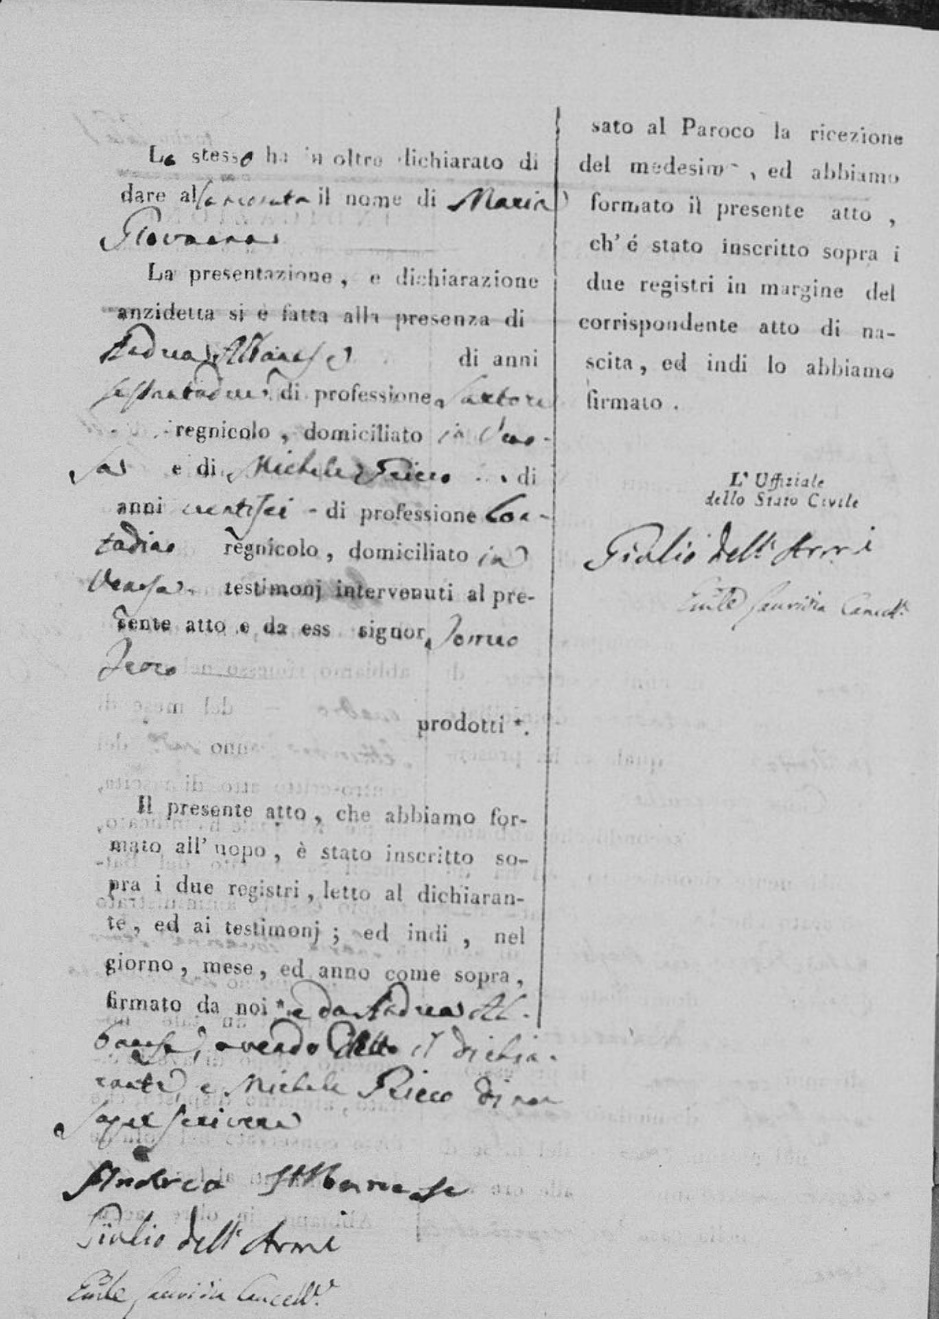 Lo stesso ha in oltre dichiarato di
dare alla neonata il nome di Maria
Giovanna
La presentazione, e dichiarazione
anzidetta si è fatta alla presenza di
Andrea Albanese di anni
sessantadue di professione Sartore
regnicolo, domiciliato in Veno-
sa e di Michele Ricco di
anni ventisei - di professione Con-
tadino regnicolo, domiciliato in
Venosa testimonj intervenuti al pre-
sente atto e da ess signor
prodotti *.
Il presente atto, che abbiamo for-
mato all' uopo, è stato inscritto so-
pra i due registri, letto al dichiaran-
te, ed ai testimonj; ed indi, nel
giorno, mese, ed anno come sopra,
firmato da noi * e da Andrea Al-
banese, avendo detto il dichia-
rante e Michele Ricco di non
saper scrivere
Andrea Albanese
Giulio dell' Armi
Cancell.
sato al Paroco la ricezione
del medesimo, ed abbiamo
formato il presente atto,
ch' é stato inscritto sopra i
due registri in margine del
corrispondente atto di na-
scita, ed indi lo abbiamo
firmato.
L' Uffiziale
dello Stato Civile
Giulio dell' Armi
Cancell.